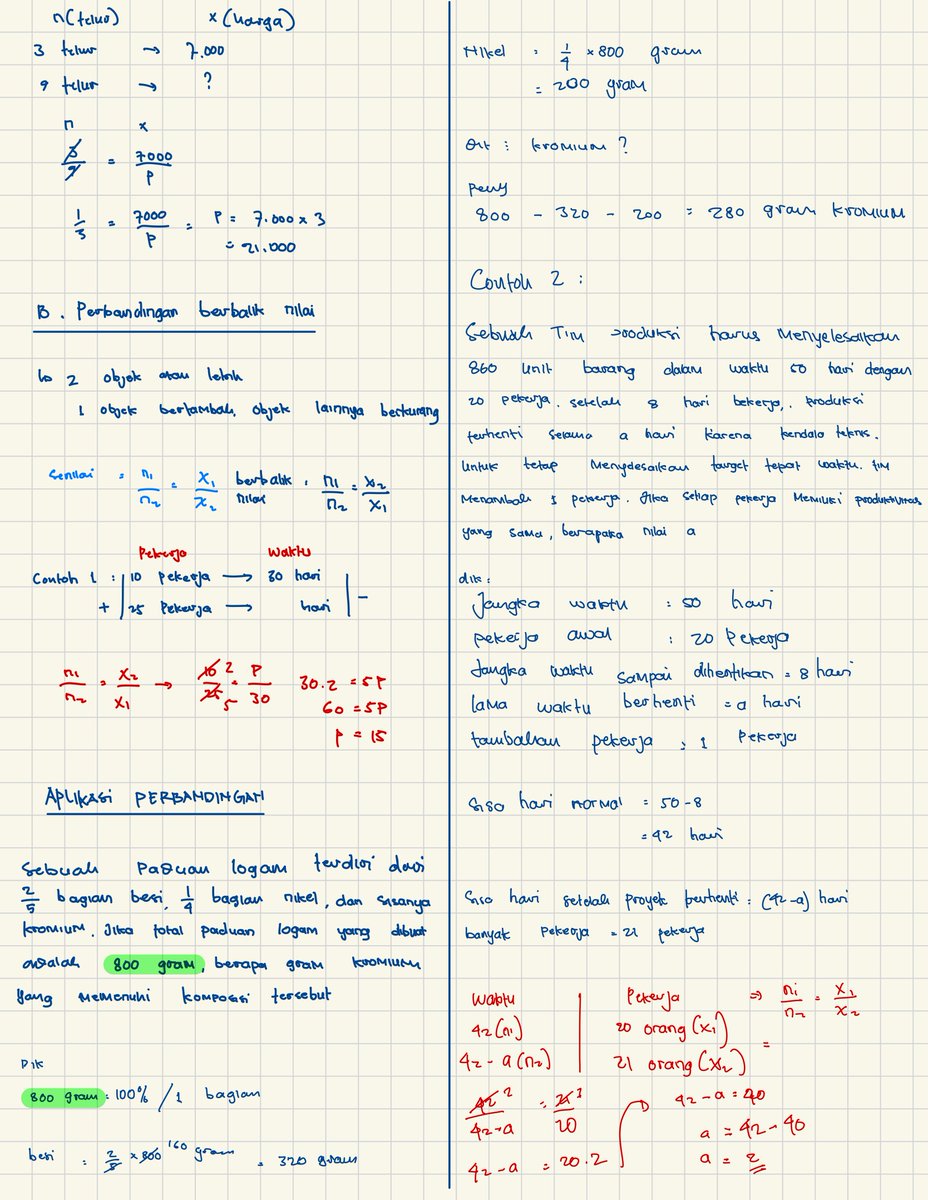 n(telur) x (harga)
3 telur → 7.000
9 telur → ?
n x
3/9 = 7000/P
1/3 = 7000/P = P = 7.000 x 3
= 21.000
B. Perbandingan berbalik nilai
↳ 2 objek atau lebih
1 objek bertambah, objek lainnya berkurang
Senilai = n1/n2 = x1/x2 berbalik nilai : n1/n2 = x2/x1
Pekerja Waktu
Contoh 1 : 10 Pekerja → 30 hari
+ 25 Pekerja → hari -
n1/n2 = x2/x1 → 10/25 2/5 = P/30 30.2 = 5P
60 = 5P
P = 15
APLIKASI PERBANDINGAN
Sebuah Paduan logam terdiri dari
2/5 bagian besi, 1/4 bagian nikel, dan sisanya
kromium. Jika total paduan logam yang dibuat
adalah 800 gram, berapa gram kromium
yang memenuhi komposisi tersebut
Dik
800 gram = 100% / 1 bagian
besi = 2/5 x 800 160 gram = 320 gram
Nikel = 1/4 x 800 gram
= 200 gram
Dit : kromium ?
peny
800 - 320 - 200 = 280 gram kromium
Contoh 2 :
Sebuah Tim produksi harus Menyelesaikan
860 unit barang dalam waktu 50 hari dengan
20 pekerja. setelah 8 hari bekerja, produksi
terhenti selama a hari karena kendala teknis.
Untuk tetap Menyelesaikan target tepat waktu. tim
Menambah 1 pekerja. Jika setiap pekerja Memiliki produktivitas
yang sama, berapaka nilai a
dik :
Jangka waktu : 50 hari
pekerja awal : 20 Pekerja
Jangka waktu sampai dihentikan = 8 hari
lama waktu berhenti = a hari
tambahan pekerja : 1 Pekerja
Siso hari normal = 50-8
= 42 hari
Siso hari setelah proyek berhenti : (42-a) hari
banyak Pekerja = 21 pekerja
Waktu Pekerja ⇒ n1/n2 = x1/x2
42 (n1) 20 orang (x1)
42-a (n2) 21 orang (x2) =
42 2/42-a = 21 1/20 42-a = 40
a = 42-40
42-a = 20.2 a = 2